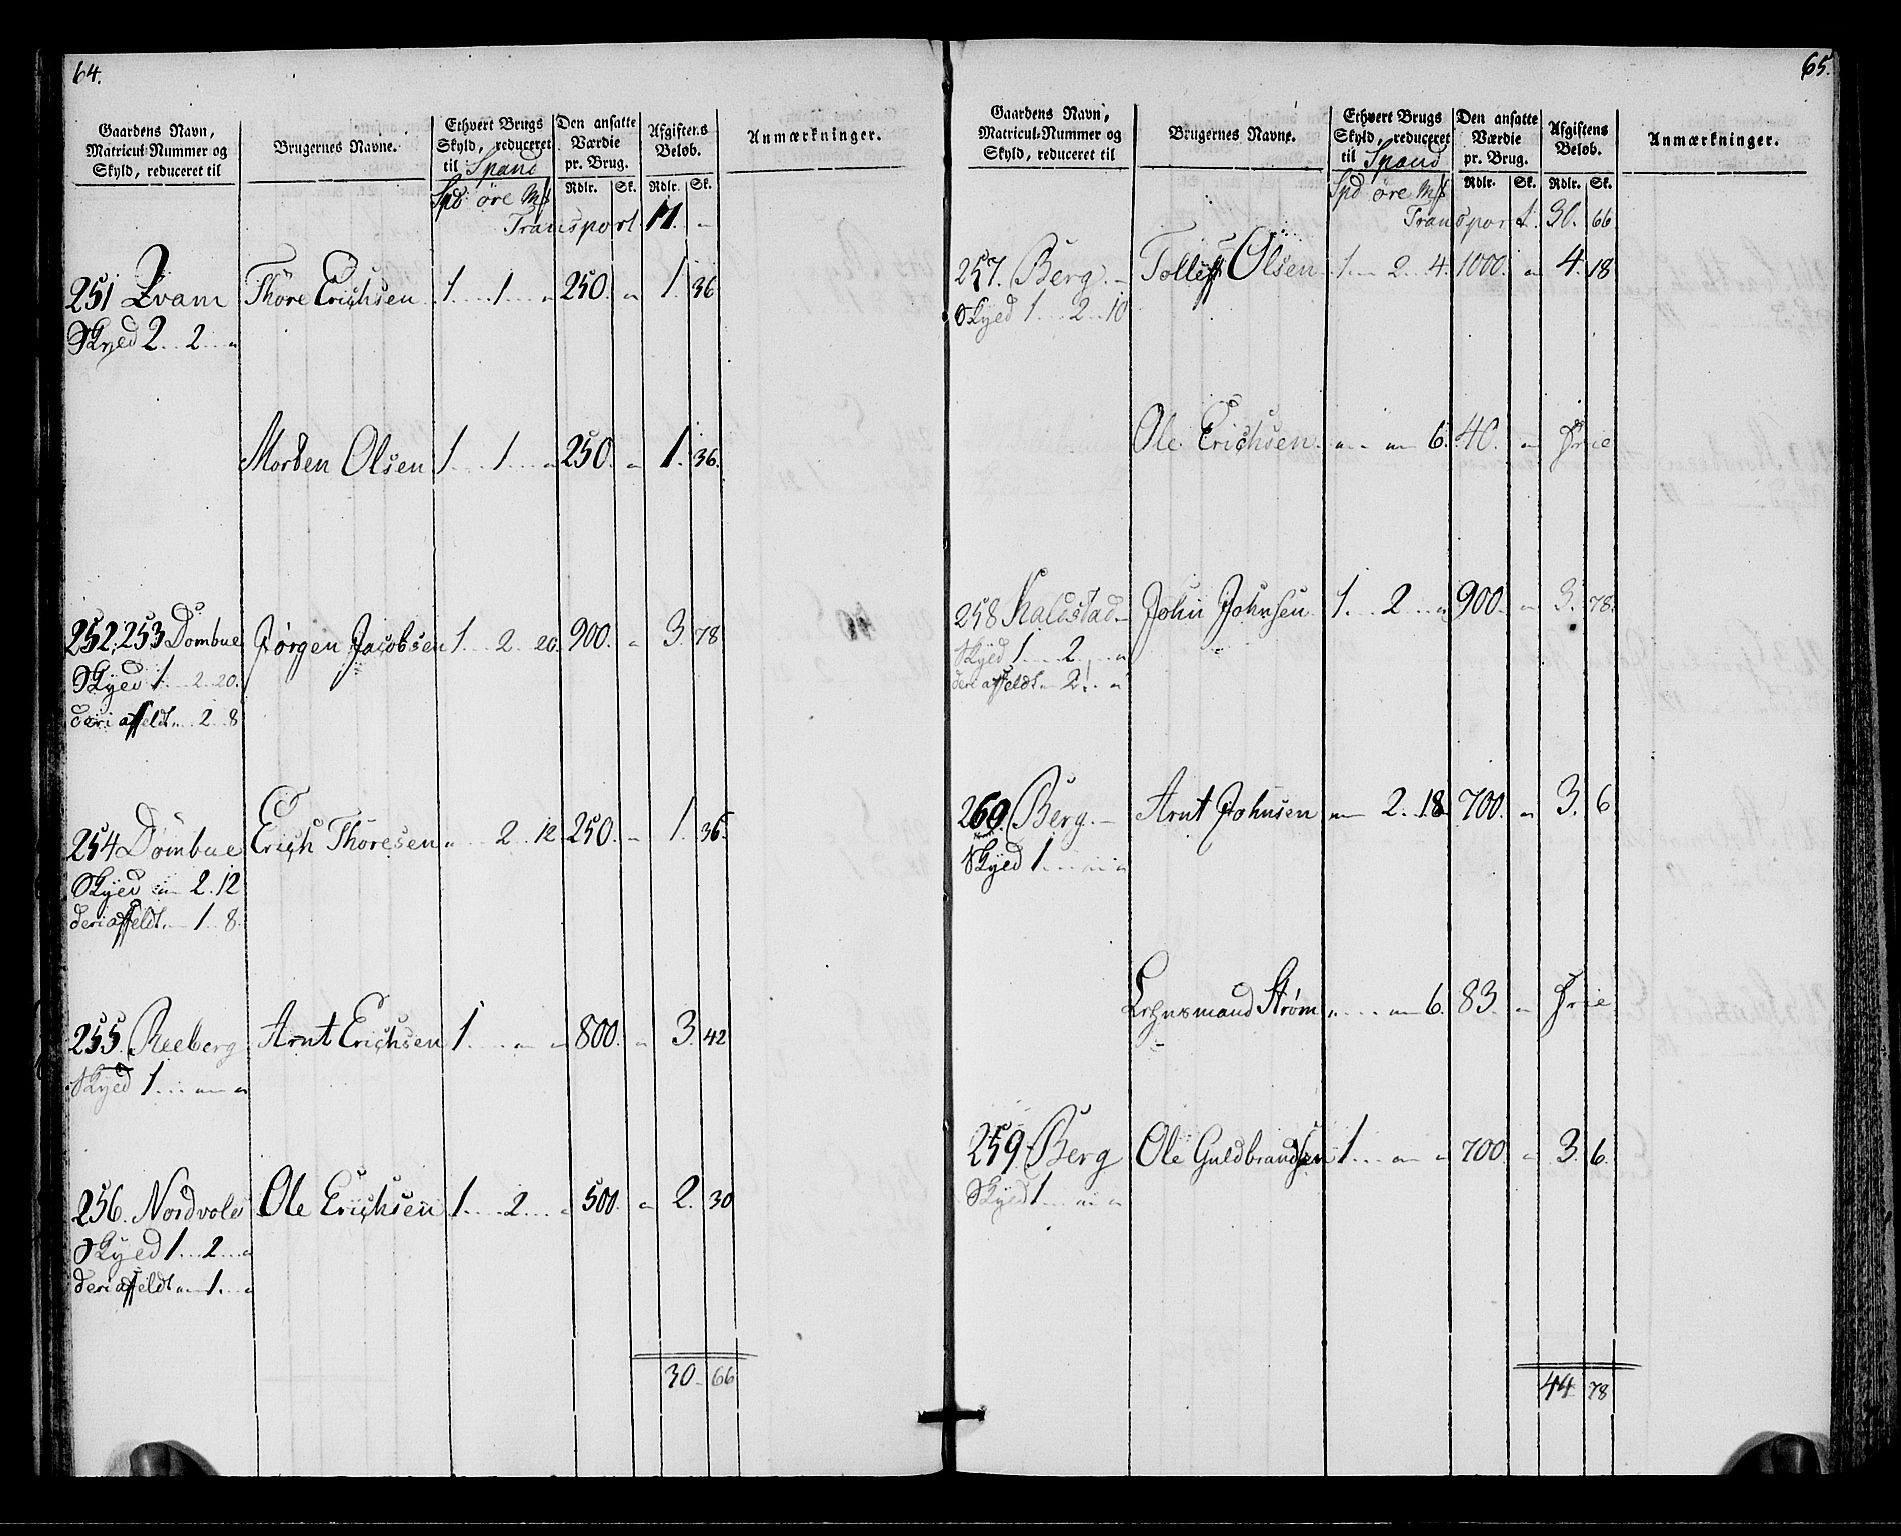 64.
Gaardens Navn, Matricul-Nummer og Skyld, reduceret til | Brugernes Navne. | Ethvert Brugs Skyld, reduceret til Spand | Den ansatte Værdie pr. Brug. | Afgiftens Beløb. | Anmærkninger.
Spd øre Mk | Rdlr. | Sk. | Rdlr. | Sk.
Transport 17. -
251 Qvam Thore Erichsen 1 1 " 250. " 1. 36
Skyed 2 2 "
Morten Olsen 1 1 " 250. " 1. 36.
252, 253 Dombue Jørgen Jacobsen 1 2 20. 900. " 3. 78
Skyed 1 2 20.
deri affeldt " 2 8
254 Dombue Erich Thoresen " 2 12 250. " 1. 36.
Skyed " 2. 12
deri affeldt " 1 8.
255 Reeberg Arnt Erichsen 1 " " 800. " 3. 42
Skyed 1 " "
256. Nordvold Ole Erichsen 1 2 " 500. " 2. 30
Skyed 1 2 "
deri affeldt " 1. "
30 66
65.
Gaardens Navn, Matricul-Nummer og Skyld, reduceret til | Brugernes Navne. | Ethvert Brugs Skyld, reduceret til Spand | Den ansatte Værdie pr. Brug. | Afgiftens Beløb. | Anmærkninger.
Spd øre Mk | Rdlr. | Sk. | Rdlr. | Sk.
Transport. 30. 66
257. Berg. Tollef Olsen 1 2 4. 1000. " 4. 18
Skyed 1 2 10
Ole Erichsen " " 6. 40. " Frie
258 John Johnsen 1 2 " 900. " 3. 78.
Skyed 1 2 "
deri affeldt " 2. "
260. Berg. Arnt Johnsen " 2. 18 700. " 3. 6
Skyed 1 " "
Lehnsmand Strøm " " 6. 83. " Frie
259 Berg Ole Guldbrandsen 1 " " 700. " 3. 6.
Skyed 1 " "
44 78